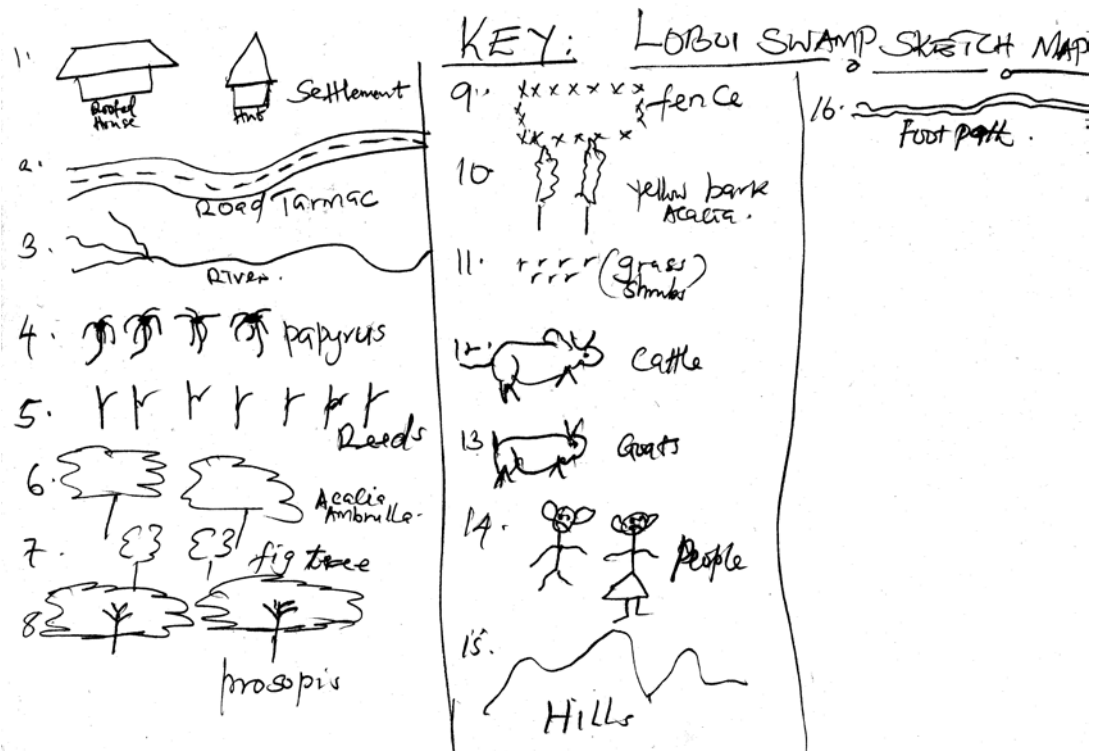 KEY: LOBOI SWAMP SKETCH MAP
1.
Roofed House
Hut
Settlement
2.
Road Tarmac
3.
River.
4. papyrus
5.
Reeds
6.
Acalia
Ambrulla.
7. fig tree
8
prosopis
9. fence
10
yellow bark
Acacia.
11. (grass)
Shrubs
12. Cattle
13 Goats
14. People
15.
Hills
16.
Foot path.